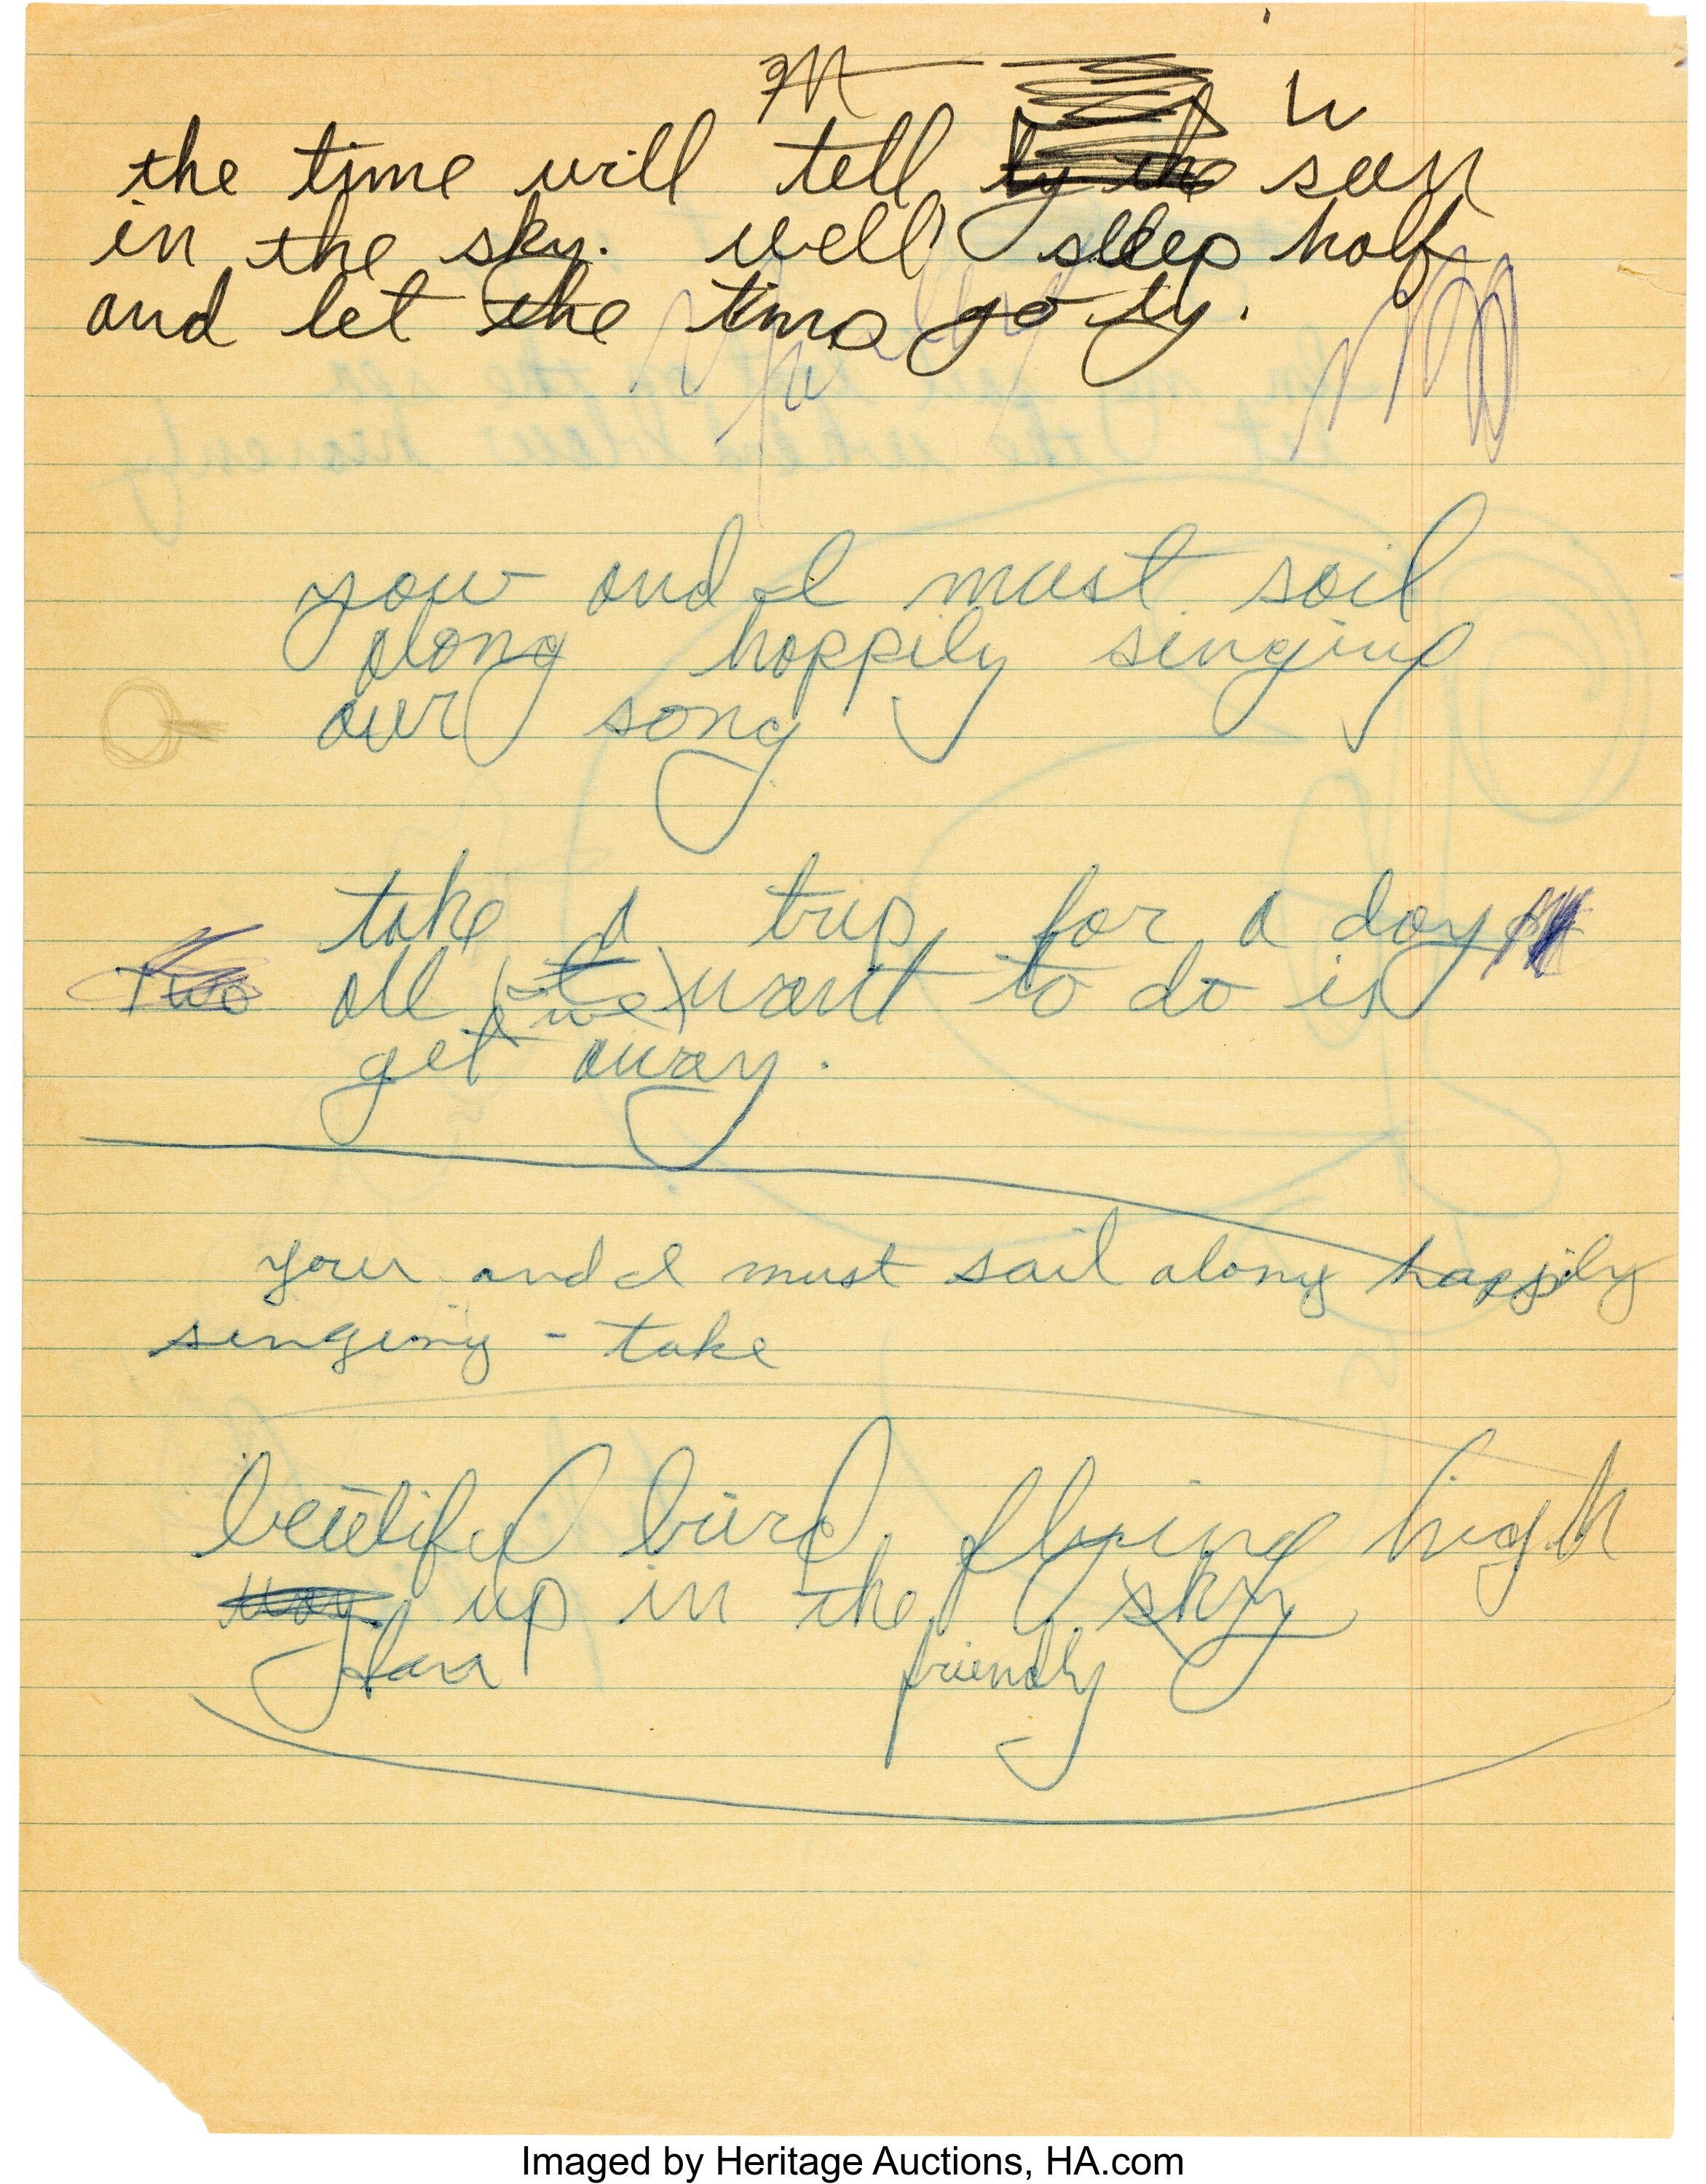 the time will tell by the sun
in the sky. well sleep half
and let the time go by.
you and I must soil
along happily singing
our song
take a trip for a day
two all (we) want to do is
get away.
your and I must sail along happily
singing - take
beutiful bird flying high
way up in the sky
far friendly
Imaged by Heritage Auctions, HA.com